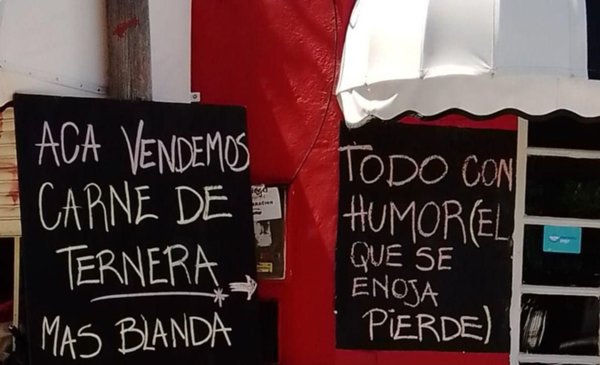 ACA VENDEMOS
CARNE DE
TERNERA
MAS BLANDA
TODO CON
HUMOR(EL
QUE SE
ENOJA
PIERDE)